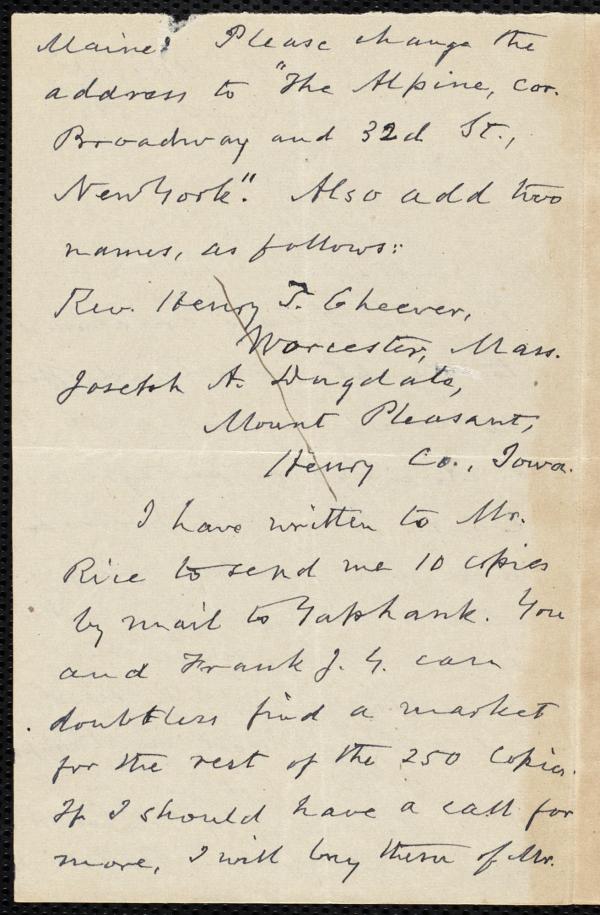 Maine. Please change the
address to "The Alpine, cor.
Broadway and 32d St.,
New York." Also add two
names, as follows:
Rev. Henry T. Cheever,
Worcester, Mass.
Joseph A. Dugdale,
Mount Pleasant,
Henry Co., Iowa.
I have written to Mr.
Rice to send me 10 copies
by mail to Yaphank. You
and Frank J. G. can
doubtless find a market
for the rest of the 250 copies.
If I should have a call for
more, I will buy them of Mr.